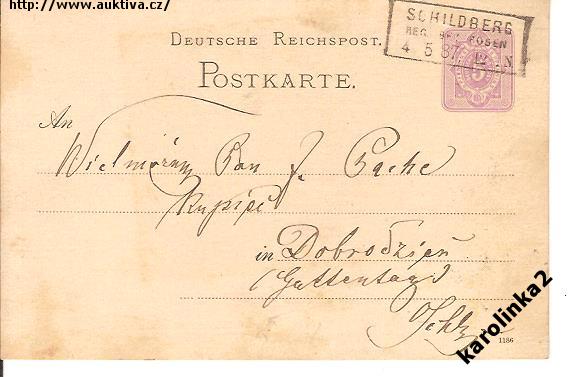 http://www.auktiva.cz/
SCHILDBERG
REG. BEZ. POSEN
4 5 87 12 - N
DEUTSCHE REICHSPOST.
POSTKARTE.
5
An
Wielmożny Pan J. Pache
Kupiec
in Dobrodzień
(Guttentag)
Schl.
1186
karolinka2